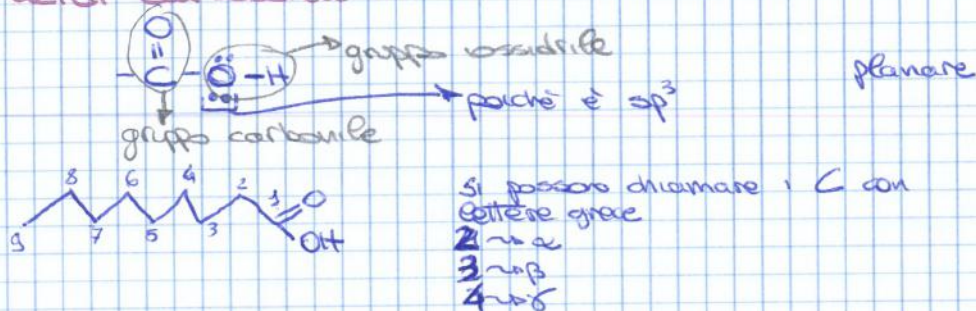 O
=
- C - Ö - H → gruppo ossidrile
→ poichè è sp³
planare
gruppo carbonile
8 6 4 2 1 O
9 7 5 3 OH
si possono chiamare i C con
lettere grece
2 ~> α
3 ~> β
4 ~> γ